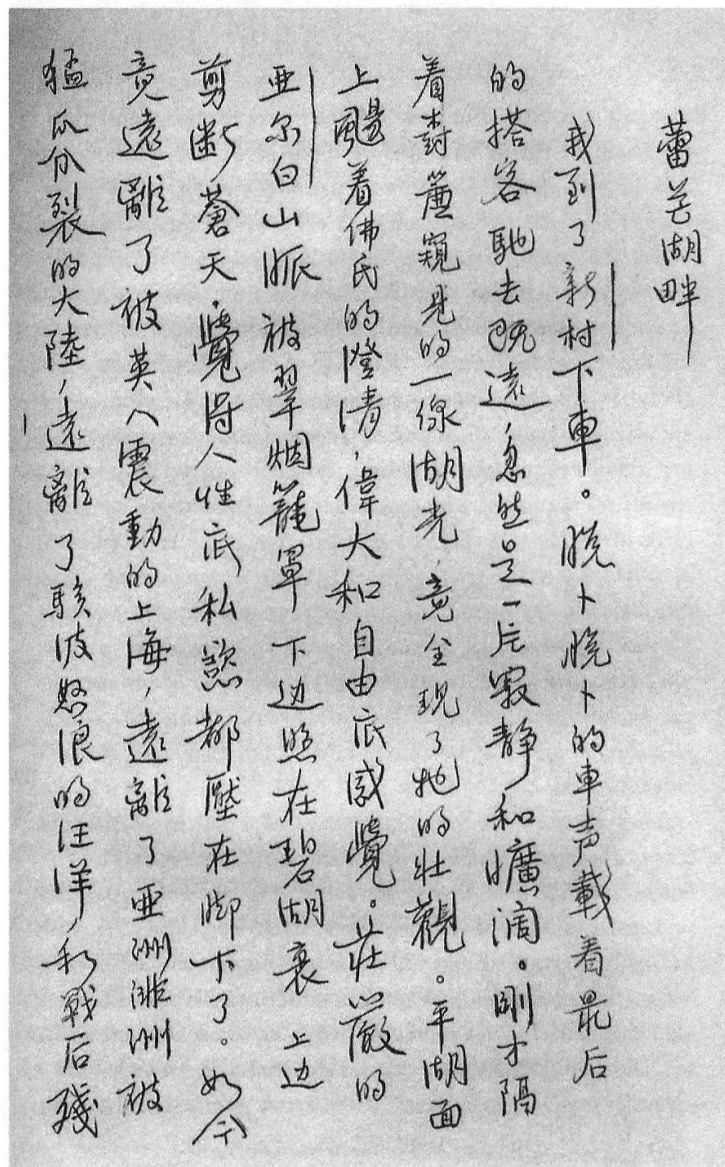 蕾芒湖畔
我到了新村下車。脱卜脱卜的車声載着最后
的搭客馳去既遠，忽然是一片寂静和曠濶。剛才隔
着樹簾窺見的一線湖光，竟全現了她的壮觀。平湖面
上颺着佛氏的澄清，偉大和自由底感覺。莊嚴的
亚尔白山脈被翠烟籠罩下边照在碧湖裏上边
剪断蒼天，覺得人性底私慾都壓在脚下了。如今
竟遠離了被英人震動的上海，遠離了亚洲非洲被
猛瓜分裂的大陸，遠離了駭波怒浪的汪洋和戰后殘